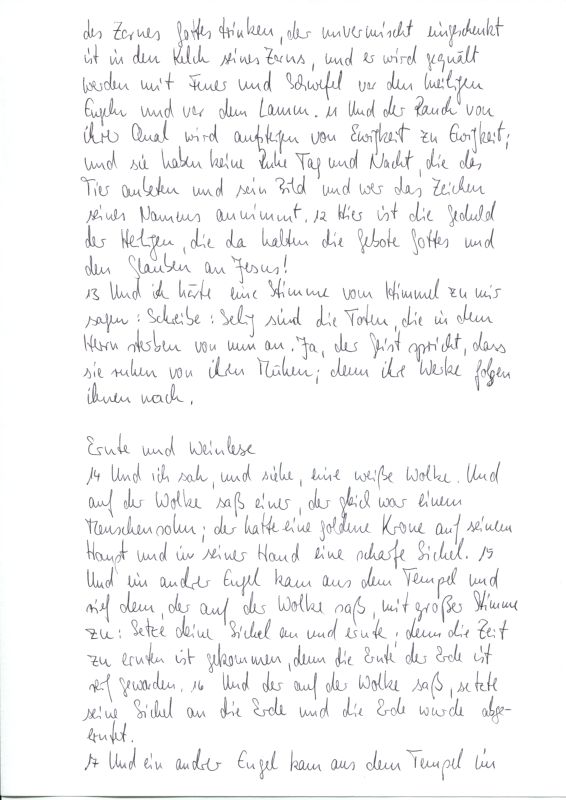 des Zornes Gottes trinken, der unvermischt eingeschenkt
ist in den Kelch seines Zorns, und er wird gequält
werden mit Feuer und Schwefel vor den heiligen
Engeln und vor dem Lamm. 11 Und der Rauch von
ihrer Qual wird aufsteigen von Ewigkeit zu Ewigkeit;
und sie haben keine Ruhe Tag und Nacht, die das
Tier anbeten und sein Bild und wer das Zeichen
seines Namens annimmt. 12 Hier ist die Geduld
der Heiligen, die da halten die Gebote Gottes und
den Glauben an Jesus!
13 Und ich hörte eine Stimme vom Himmel zu mir
sagen: Schreibe: Selig sind die Toten, die in dem
Herrn sterben von nun an. Ja, der Geist spricht, dass
sie ruhen von ihren Mühen; denn ihre Werke folgen
ihnen nach.
Ernte und Weinlese
14 Und ich sah, und siehe, eine weiße Wolke. Und
auf der Wolke saß einer, der gleich war einem
Menschensohn; der hatte eine goldene Krone auf seinem
Haupt und in seiner Hand eine scharfe Sichel. 15
Und ein andrer Engel kam aus dem Tempel und
rief dem, der auf der Wolke saß, mit großer Stimme
zu: Setze deine Sichel an und ernte; denn die Zeit
zu ernten ist gekommen, denn die Ernte der Erde ist
reif geworden. 16 Und der auf der Wolke saß, setzte
seine Sichel an die Erde und die Erde wurde abge-
erntet.
17 Und ein andrer Engel kam aus dem Tempel im